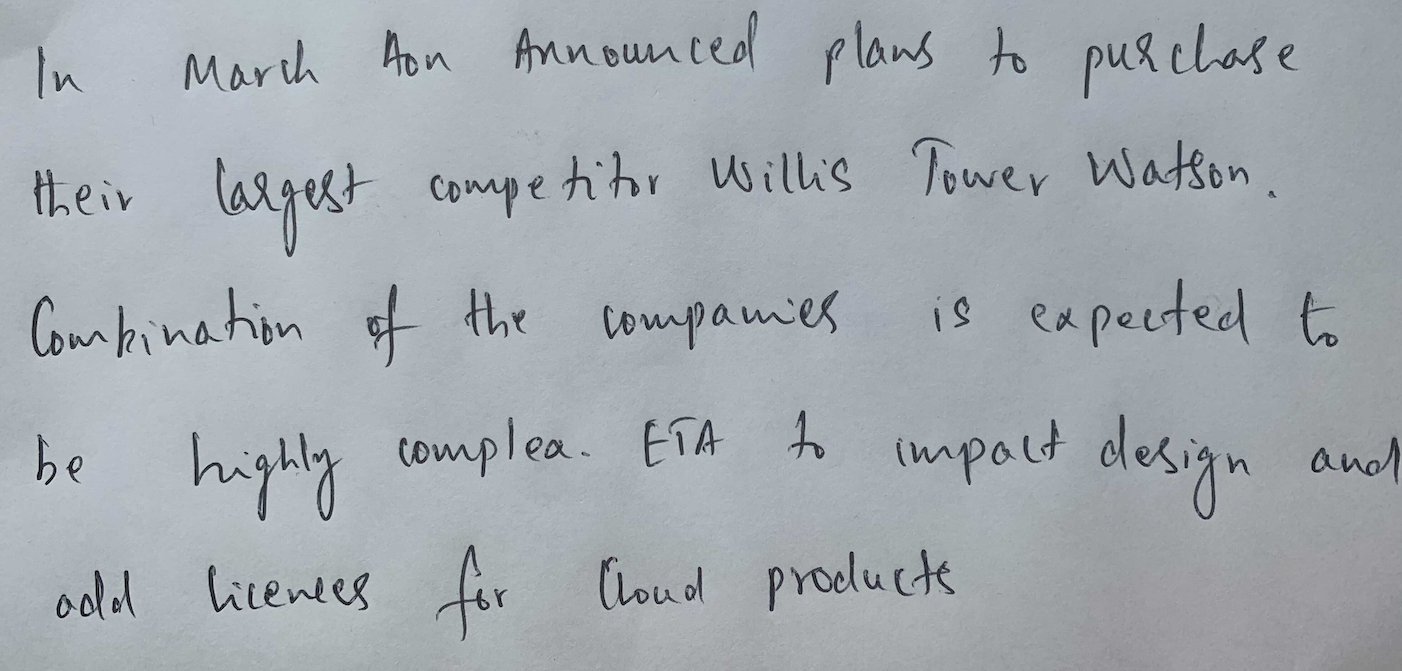 In March Aon Announced plans to purchase
their largest competitor Willis Tower Watson.
Combination of the companies is expected to
be highly complex. ETA to impact design and
add licenses for Cloud products